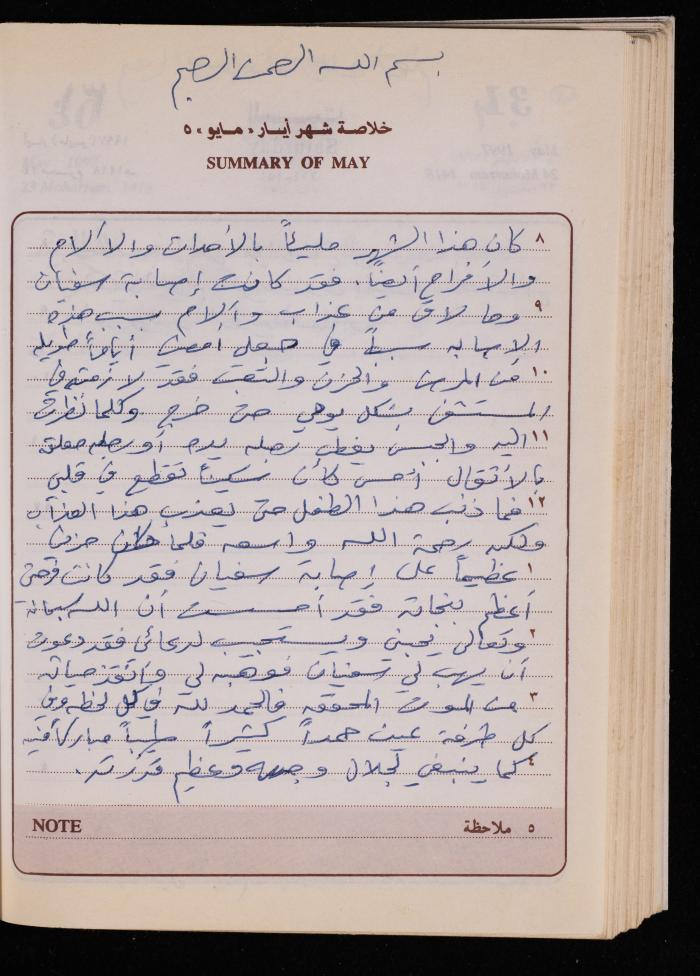 بسم الله الرحمن الرحيم
خلاصة شهر أيار «مايو» ٥
SUMMARY OF MAY
٨ كان هذا الشهر مليئاً بالأحداث والآلام
والأفراح أيضاً. فقد كانت إصابة سفيان
٩ وما لاقى من عذاب وآلام بسبب هذه
الإصابه سبباً في جعلي أمضي أياماً طويله
١٠ من المرض والحزن والتعب فقد لازمته في
المستشفى بشكل يومي حتى خرج وكلما نظرت
١١ اليه والجبس يغطي رجله يده أو رجله معلقة
بالأثقال أحس كأن سكيناً تقطع في قلبي
١٢ فما ذنب هذا الطفل حتى يعذب هذا العذاب
ولكن رحمة الله واسعه فلما كان حزني
١ عظيماً على إصابة سفيان فقد كانت فرحتي
أعظم بنجاته فقد أحسست أن الله سبحانه
٢ وتعالى يحبني ويستجيب لدعائي فقد دعوت
أن يهب لي سفيان فوهبه لي وأنقذ حياته
٣ من الموت المحققه فالحمد لله في كل لحظه وفي
كل طرفة عين حمداً كثيراً طيباً مباركاً فيه
٤ كما ينبغي لجلال وجهه وعظيم قدرته.
NOTE
٥ ملاحظة